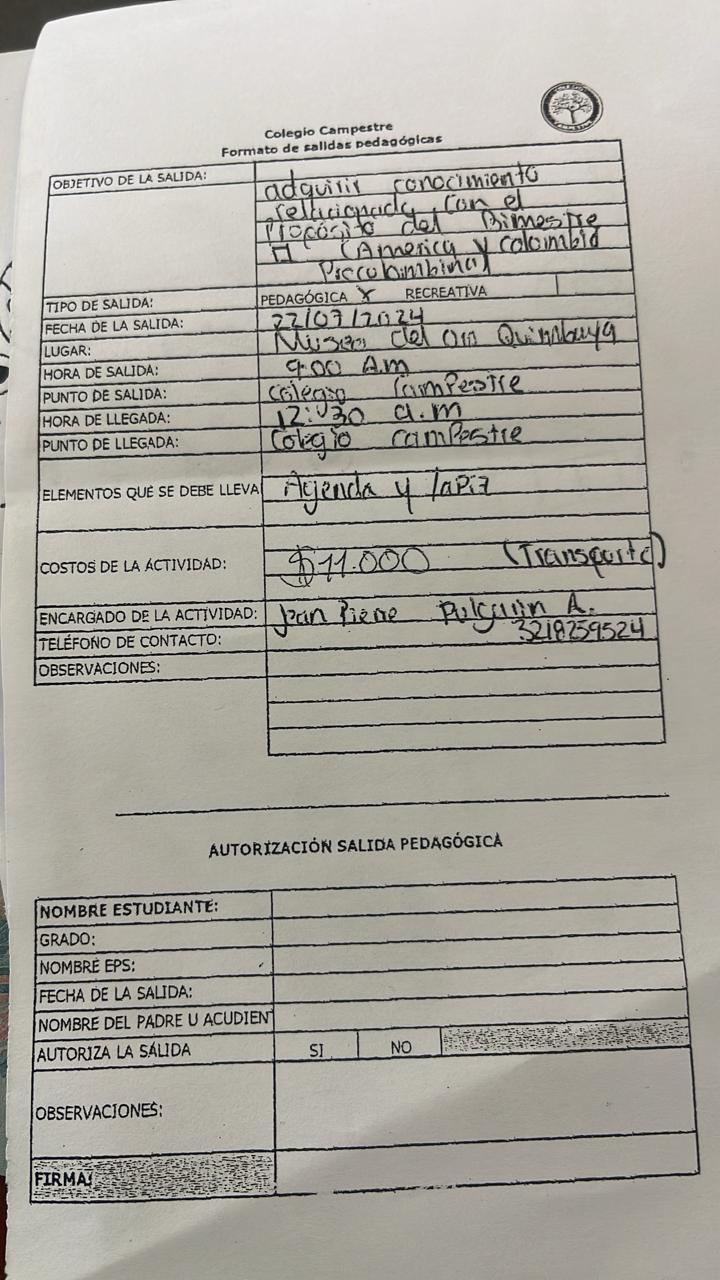 Colegio Campestre
Formato de salidas pedagógicas
OBJETIVO DE LA SALIDA: adquirir conocimiento
relacionada con el
Proposito del Bimestre
II (America y colombia
Precolombina)
TIPO DE SALIDA: PEDAGÓGICA X RECREATIVA
FECHA DE LA SALIDA: 22/07/2024
LUGAR: Museo del oro Quimbaya
HORA DE SALIDA: 9:00 A.m
PUNTO DE SALIDA: Colegio CamPestre
HORA DE LLEGADA: 12:30 a.m
PUNTO DE LLEGADA: Colegio camPestre
ELEMENTOS QUE SE DEBE LLEVA Agenda y lapiz
COSTOS DE LA ACTIVIDAD: $11.000 (Transporte)
ENCARGADO DE LA ACTIVIDAD: Jean Pierre Pulgarin A.
TELÉFONO DE CONTACTO: 3218259524
OBSERVACIONES:
AUTORIZACIÓN SALIDA PEDAGÓGICA
NOMBRE ESTUDIANTE:
GRADO:
NOMBRE EPS:
FECHA DE LA SALIDA:
NOMBRE DEL PADRE U ACUDIEN
AUTORIZA LA SALIDA SI NO
OBSERVACIONES:
FIRMA: